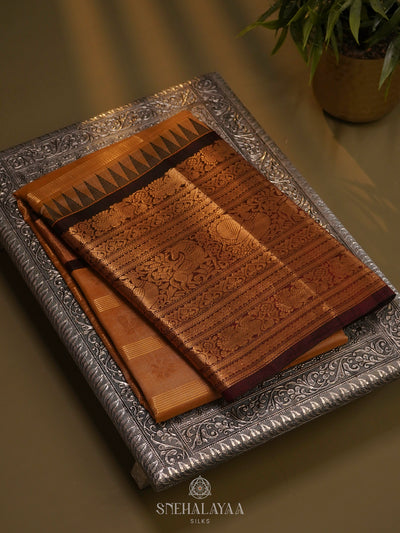 SNEHALAYAA
SILKS